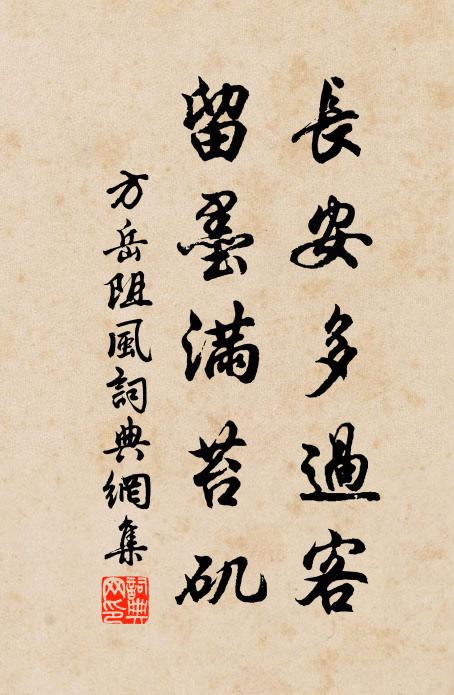 長安多過客
留墨滿苔矶
方岳阻風詞典網集
詞典
网印